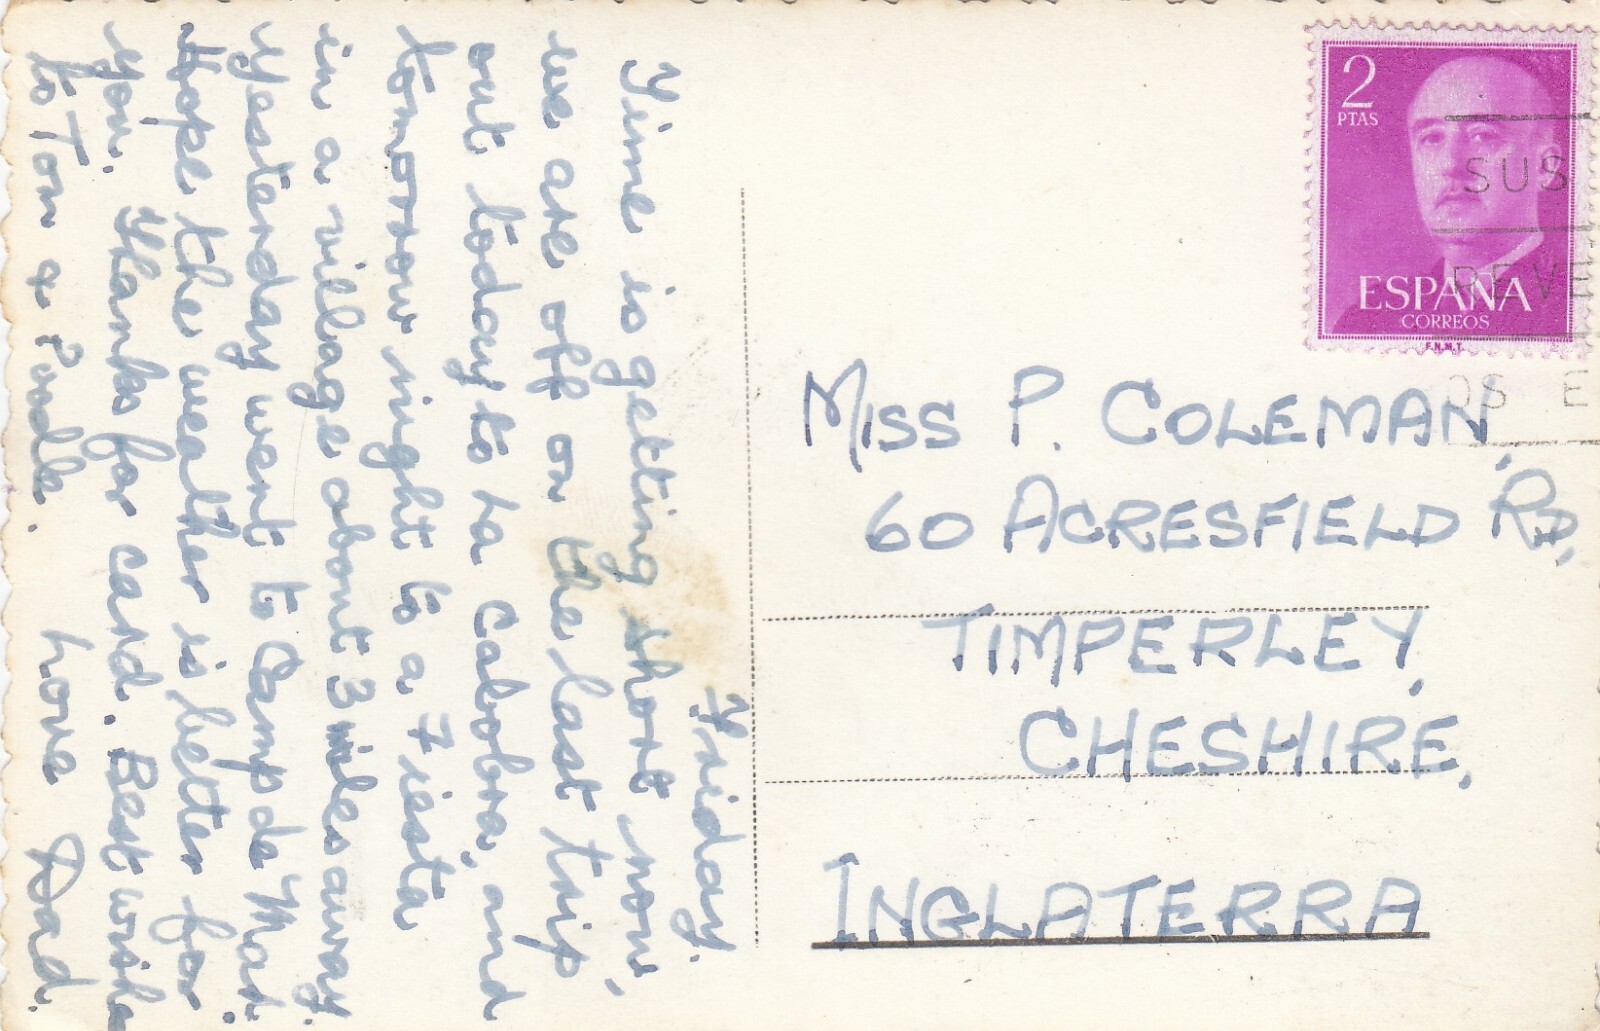 Friday.
Time is getting short now,
we are off on the last trip
out today to La Calobra, and
tomorrow night to a Fiesta
in a village about 3 miles away.
Yesterday went to Camp de Mar.
Hope the weather is better for
you. Thanks for card. Best wishes
to Tom & Poodle. Love Dad.
2
PTAS
ESPAÑA
CORREOS
F.N.M.T.
SUS
REVE
OS E
MISS P. COLEMAN,
60 ACRESFIELD RD,
TIMPERLEY,
CHESHIRE,
INGLATERRA